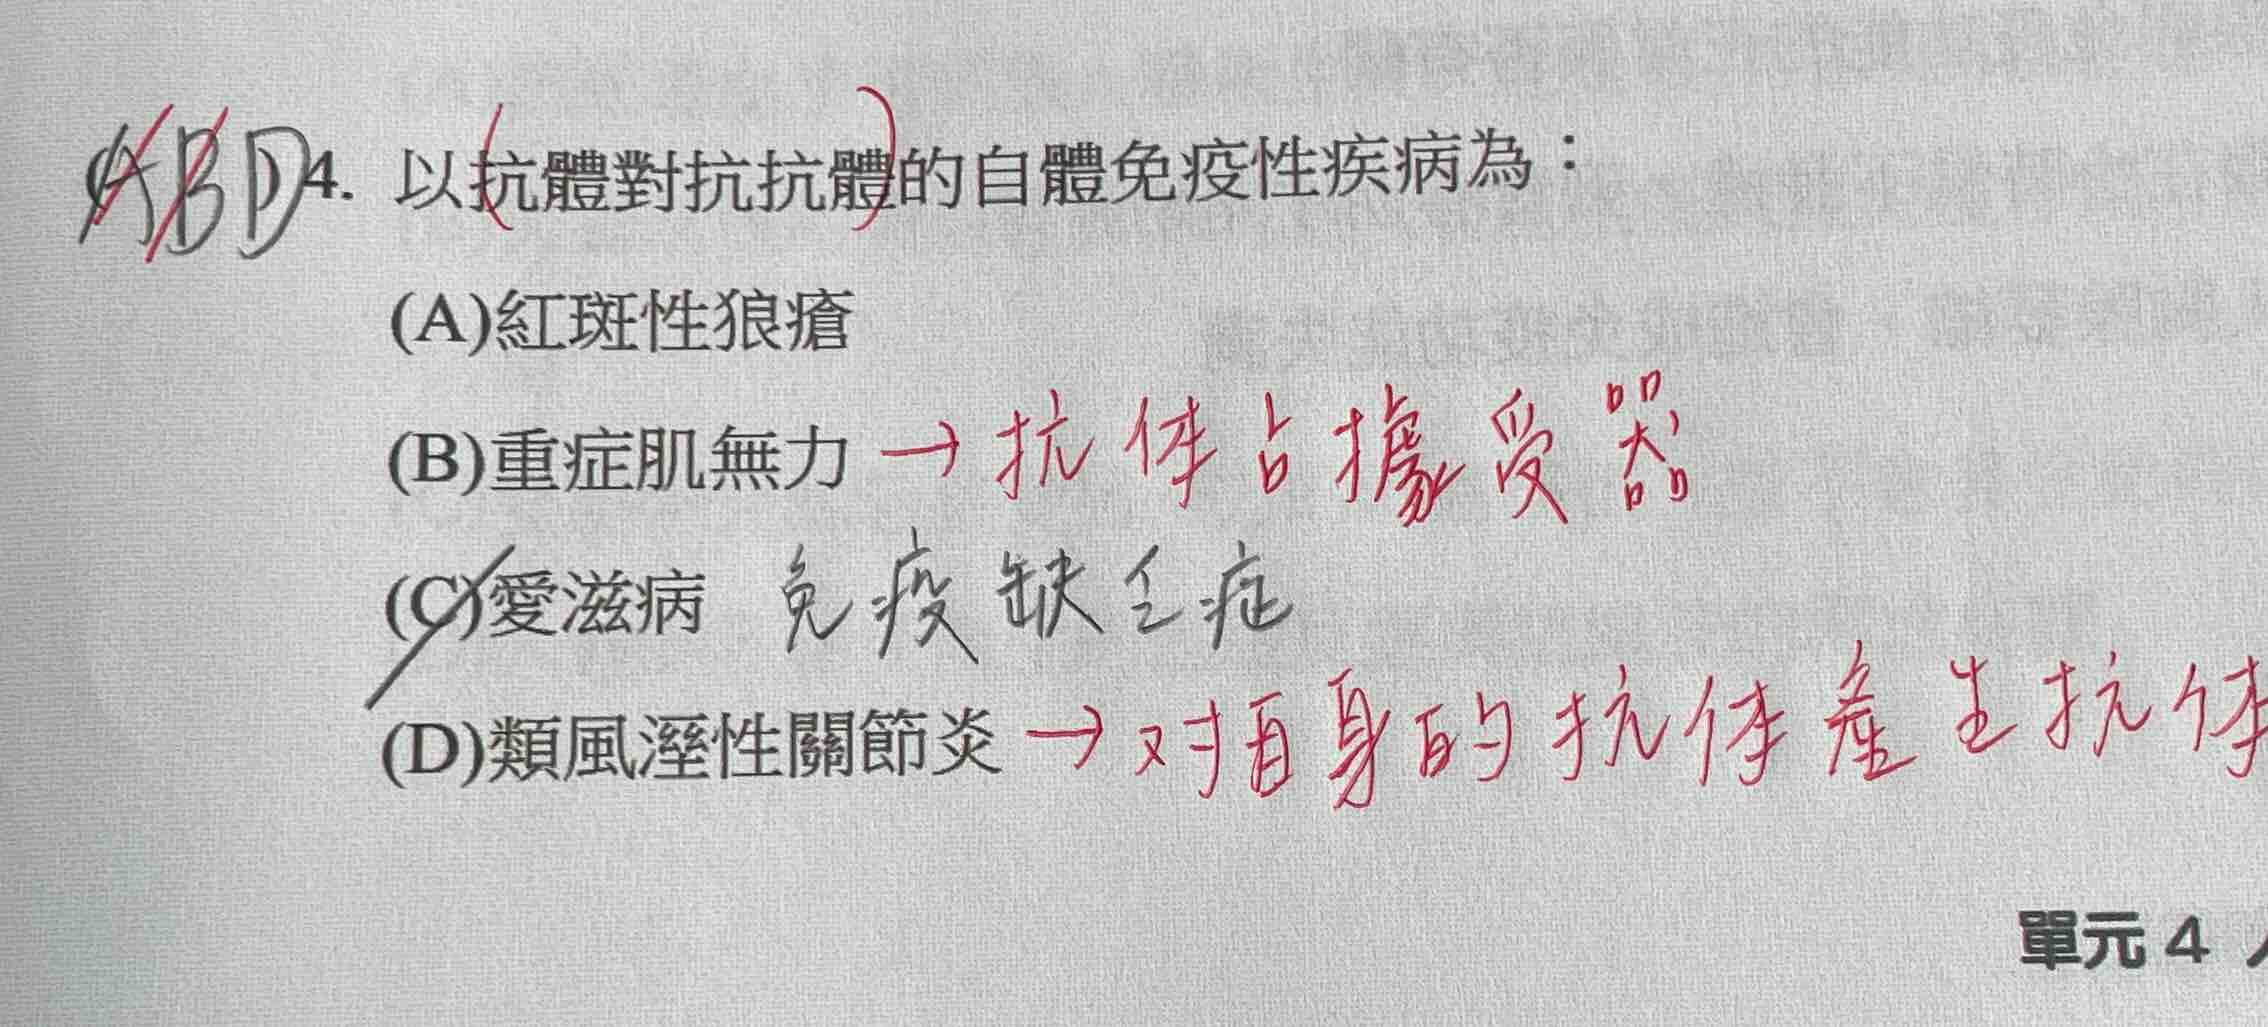 ABD 4. 以(抗體對抗抗體)的自體免疫性疾病為：
(A)紅斑性狼瘡
(B)重症肌無力 → 抗体占據受器
(C)愛滋病 免疫缺乏症
(D)類風溼性關節炎 → 对自身的抗体產生抗体
單元 4